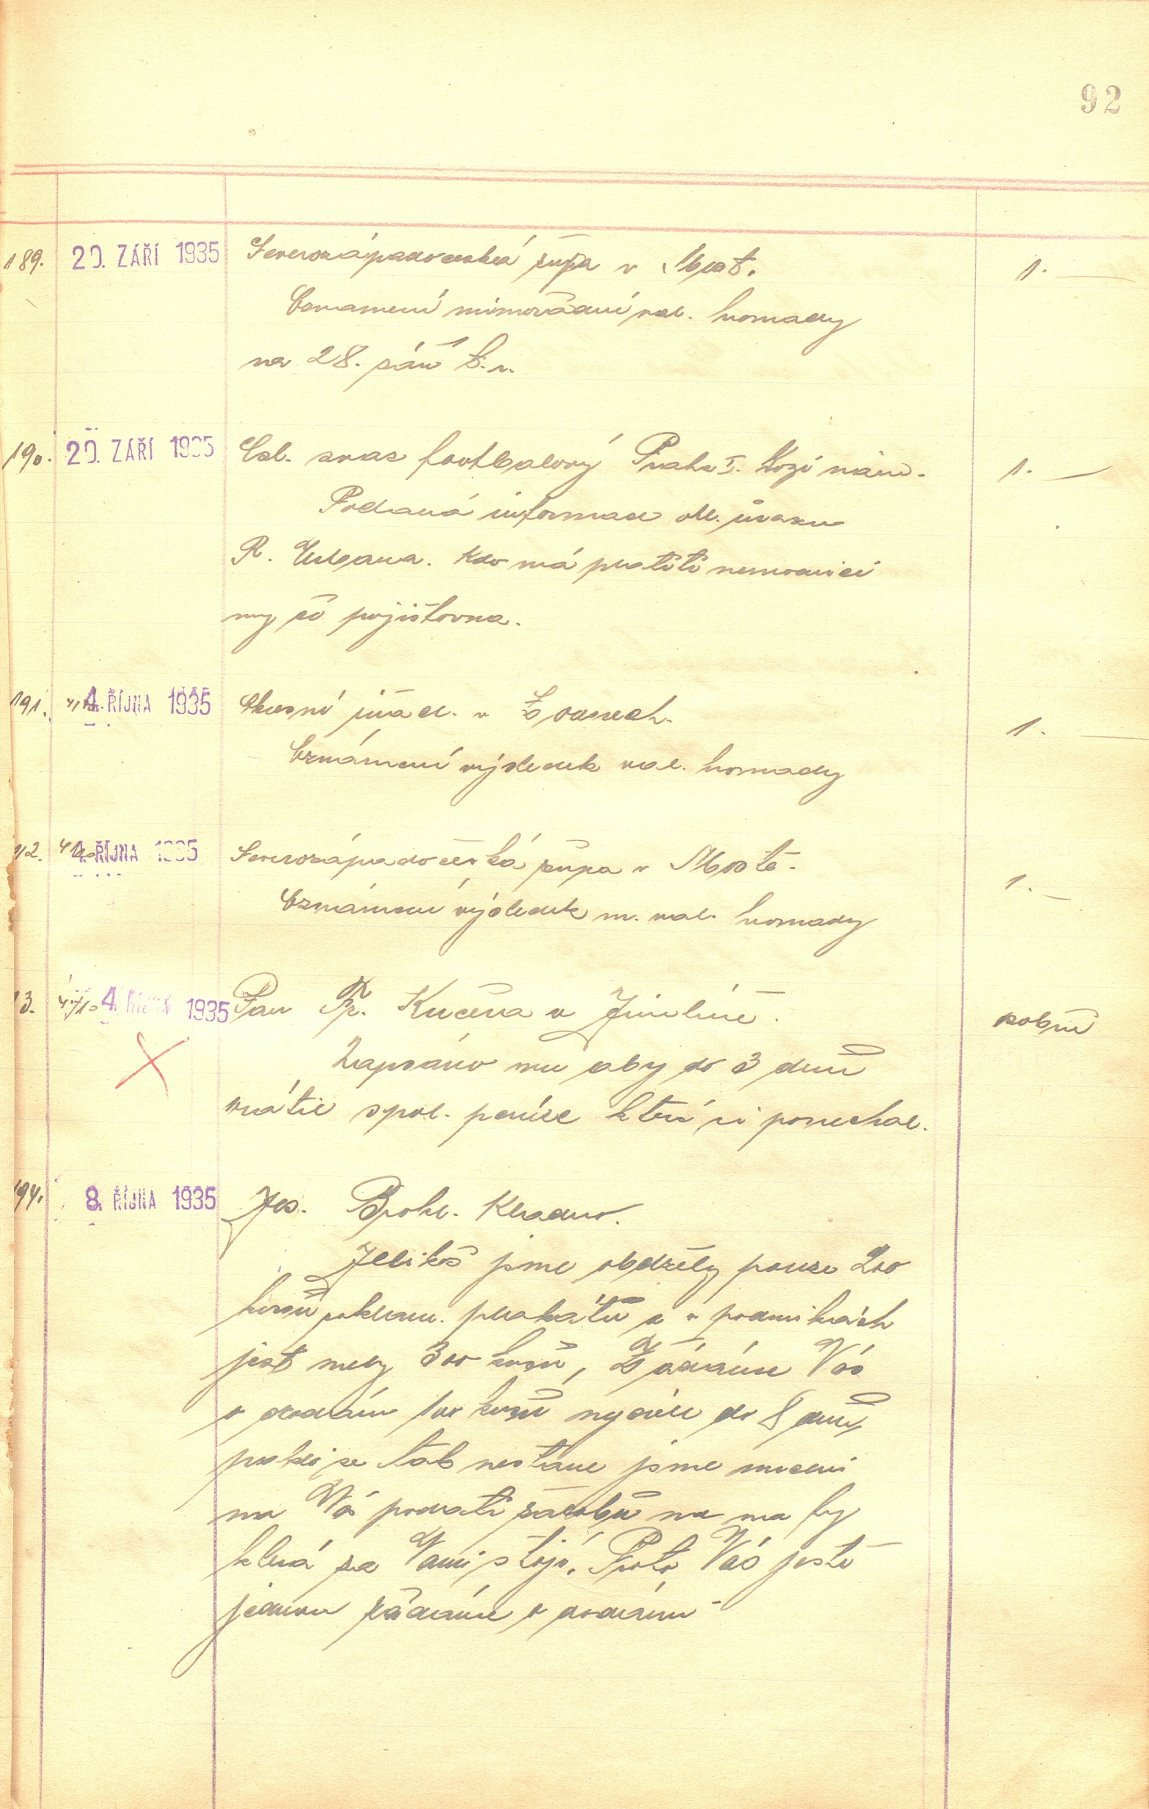 92
189. 20. ZÁŘÍ 1935 Severozápadočeská župa v Most. 1.
Oznamení mimořádné val. hromady
na 28. září t. r.
190. 20. ZÁŘÍ 1935 Čsl. svaz footbalový Praha I. Kozí nám. 1.
Podaná informace ohl. úrazu
R. Urbana. Kdo má platiti nemocnici
my či pojišťovna.
191. 4. ŘÍJNA 1935 Okresní úřad. v Lounech. 1.
Oznámení výsledek val. hromady
92. 4/10 4. ŘÍJNA 1935 Severozápadočeská župa v Mostě. 1.
Oznámení výsledek m. val. hromady
93. 4/10 4. ŘÍJNA 1935 Pan Fr. Kučera v Jimlíně. sobní
Zapsáno mu aby do 3 dnů
vrátil spol. peníze které si ponechal.
194. 8. ŘÍJNA 1935 Jos. Kladno.
Jelikož jsme obdržely pouze 200
kusů reklam. plakátů a v podmínkách
jest mely 300 kusů, Žádáme Vás
o dodání 100 kusů nejdéle do 8 dnů,
pakli se tak nestane jsme nuceni
na Vás podati žalobu na
která za Vámi stojí. Proto Vás ještě
jednou žádáme o dodání